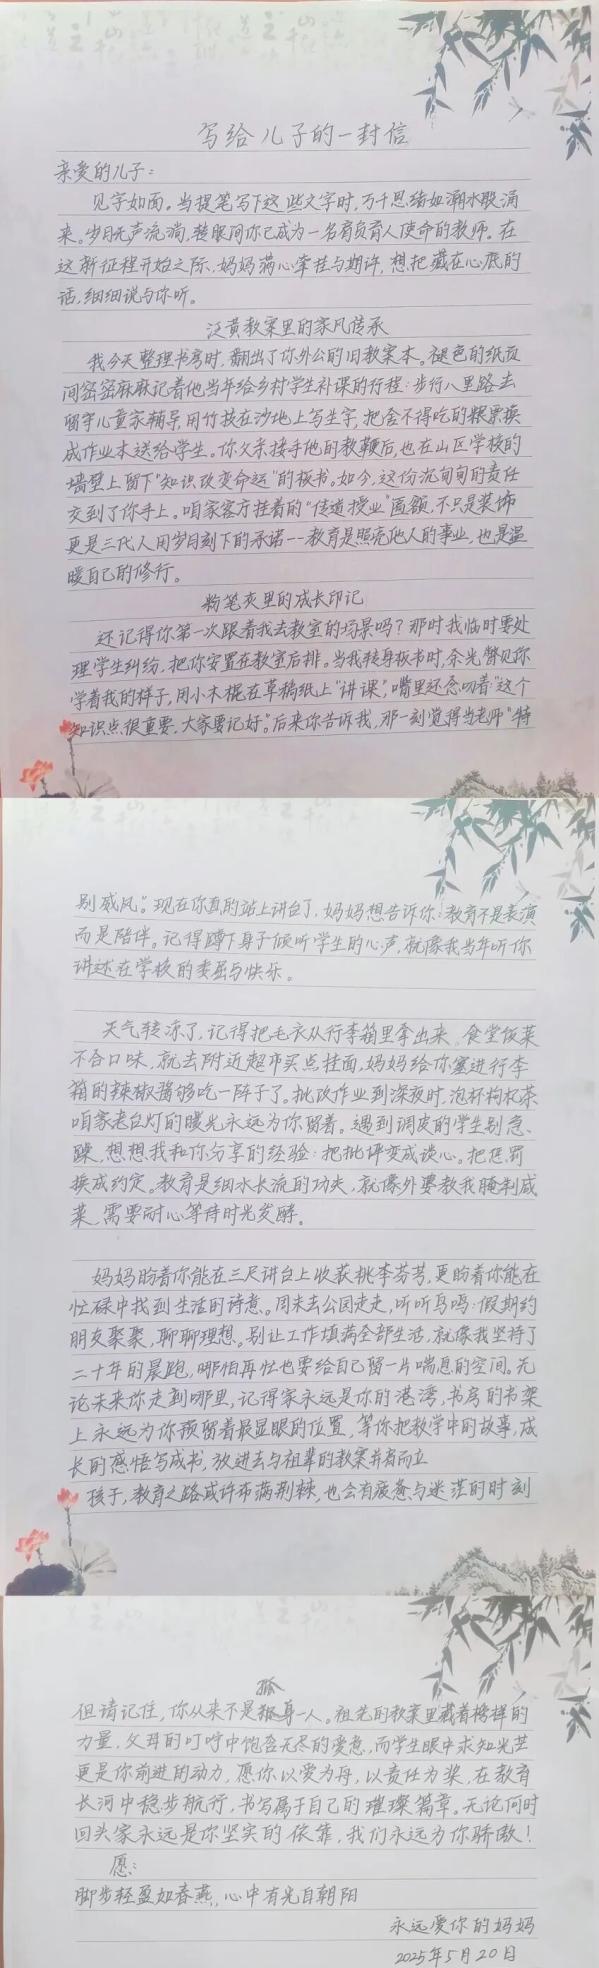 写给儿子的一封信
亲爱的儿子:
见字如面。当提笔写下这些文字时,万千思绪如潮水般涌
来。岁月无声流淌,转眼间你已成为一名肩负育人使命的教师。在
这新征程开始之际,妈妈满心牵挂与期许,想把藏在心底的
话,细细说与你听。
泛黄教案里的家风传承
我今天整理书房时,翻出了你外公的旧教案本。褪色的纸页
间密密麻麻记着他当年给乡村学生补课的行程:步行八里路去
留守儿童家辅导,用竹枝在沙地上写生字,把舍不得吃的粮票换
成作业本送给学生。你父亲接手他的教鞭后,也在山区学校的
墙壁上留下“知识改变命运”的板书。如今,这份沉甸甸的责任
交到了你手上。咱家客厅挂着的“传道授业”匾额,不只是装饰
更是三代人用岁月刻下的承诺--教育是照亮他人的事业,也是温
暖自己的修行。
粉笔灰里的成长印记
还记得你第一次跟着我去教室的场景吗?那时我临时要处
理学生纠纷,把你安置在教室后排。当我转身板书时,余光瞥见你
学着我的样子,用小木棍在草稿纸上“讲课”,嘴里还念叨着“这个
知识点很重要,大家要记好”。后来你告诉我,那一刻觉得当老师“特
别威风”。现在你真的站上讲台了,妈妈想告诉你:教育不是表演
而是陪伴。记得蹲下身子倾听学生的心声,就像我当年听你
讲述在学校的委屈与快乐。
天气转凉了,记得把毛衣从行李箱里拿出来,食堂饭菜
不合口味,就去附近超市买点挂面,妈妈给你塞进行李
箱的辣椒酱够吃一阵子了。批改作业到深夜时,泡杯枸杞茶
咱家老台灯的暖光永远为你留着。遇到调皮的学生别急
躁,想想我和你分享的经验:把批评变成谈心。把惩罚
换成约定。教育是细水长流的功夫,就像外婆教我腌制咸
菜,需要耐心等待时光发酵。
妈妈盼着你能在三尺讲台上收获桃李芬芳,更盼着你能在
忙碌中找到生活的诗意。周末去公园走走,听听鸟鸣;假期约
朋友聚聚,聊聊理想。别让工作填满全部生活,就像我坚持了
二十年的晨跑,哪怕再忙也要给自己留一片喘息的空间。无
论未来你走到哪里,记得家永远是你的港湾,书房的书架
上永远为你预留着最显眼的位置,等你把教学中的故事,成
长的感悟写成书,放进去与祖辈的教案并肩而立
孩子,教育之路或许布满荆棘,也会有疲惫与迷茫的时刻
但请记住,你从来不是孤身一人。祖先的教案里藏着榜样的
力量,父母的叮咛中饱含无尽的爱意,而学生眼中求知光芒
更是你前进的动力,愿你以爱为舟,以责任为桨,在教育
长河中稳步航行,书写属于自己的璀璨篇章。无论何时
回头家永远是你坚实的依靠,我们永远为你骄傲!
愿:
脚步轻盈如春燕,心中有光自朝阳
永远爱你的妈妈
2025年5月20日